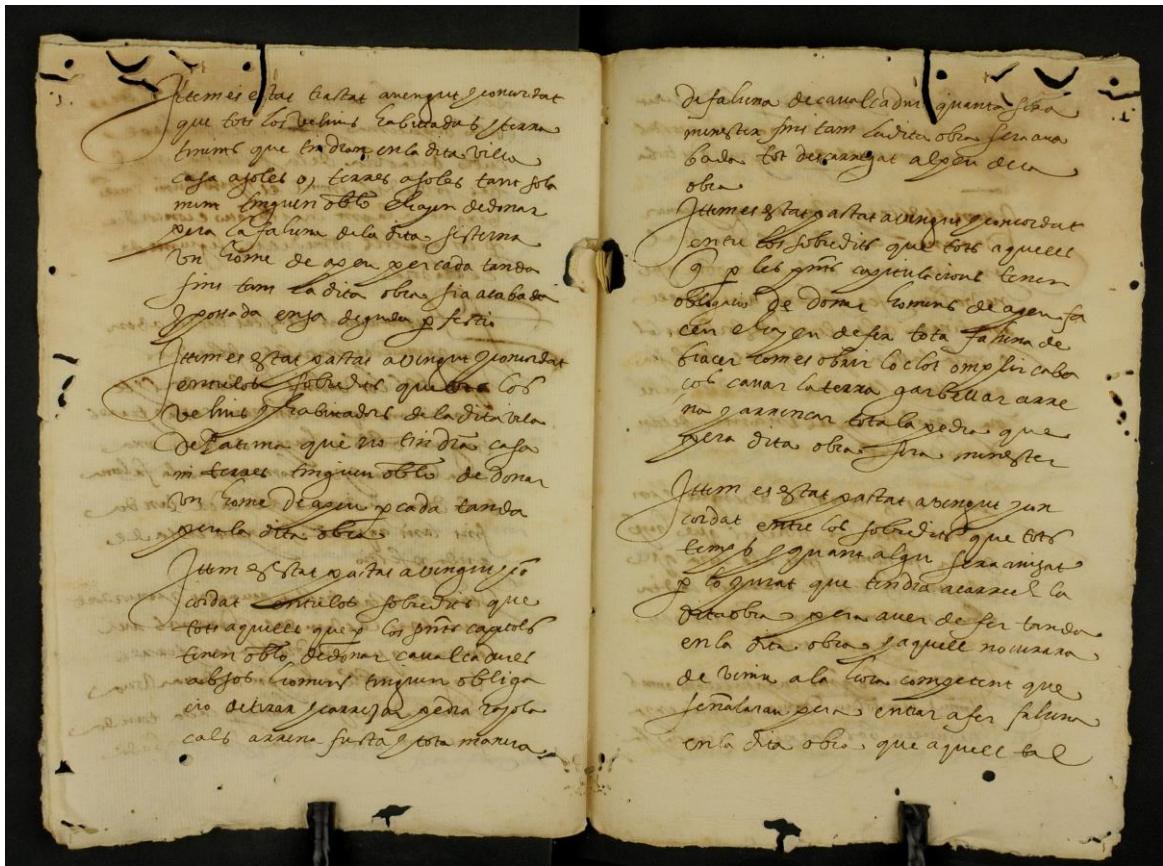 Ittem es estat tractat avengut y concordat
que tots los vehins habitadors y terra
tinents que tindran en la dita vila
casa a soles o, terres a soles tant sola
ment tinguen oblo e hajen de donar
pera la fahena de la dita sisterna
un home de apeu per cada tanda
fins tant la dita obra sia acabada
y posada en sa deguda perfectio
Ittem es estat pactat avengut y concordat
entre los sobredits que tots los
vehins y habitadors de la dita vila
de Ratima que no tindran casa
ni terres tinguen oblo de donar
un home de apeu p cada tanda
pera la dita obra
Ittem es estat pactat avengut y con
cordat entre los sobredits que
tots aquells que p los pnts capitols
tenen oblo de donar cavalcadures
ab sos homens tinguen obliga
cio de tirar y carrejar pedra rajola
cals arena fusta y tota manera
de fahena de cavalcadura quanta sera
menester fins tant la dita obra sera aca
bada tot descarregat al peu de la
obra
Ittem es estat pactat avengut y concordat
entre los sobredits que tots aquells
q p les pnts capitulacions tenen
obligacio de donar homens de apeu fa
cen e hajen de fer tota fahena de
bracer com es obrir lo clot omplir caba
ços cavar la terra garbellar arre
na y arrencar tota la pedra que
pera dita obra sera menester
Ittem es estat pactat avengut y con
cordat entre los sobredits que tots
temps y quant algu sera avisat
p lo jurat que tindra a carrech la
dita obra pera aver de fer tanda
en la dita obra y aquell no curara
de venir a la hora competent que
señalaran pera entrar a fer fahena
en la dita obra que aquell tal